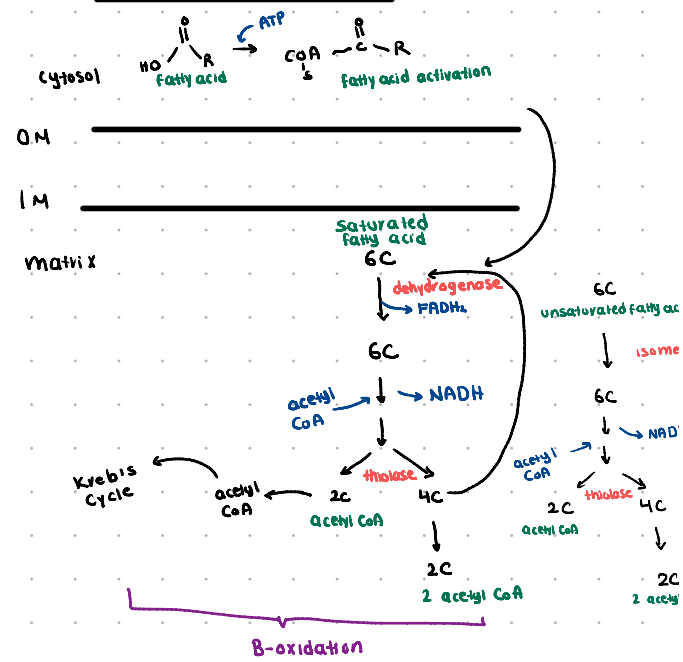 O
ATP
HO
R
fatty acid
O
CoA
S
C
R
fatty acid activation
Cytosol
OM
IM
matrix
saturated
fatty acid
6C
dehydrogenase
FADH₂
6C
acetyl
CoA
NADH
thiolase
2C
4C
acetyl CoA
acetyl
CoA
Kreb's
Cycle
2C
2 acetyl CoA
B-oxidation
6C
unsaturated fatty ac
isome
6C
acetyl
CoA
NAD
thiolase
2C
4C
acetyl CoA
2C
2 acetyl